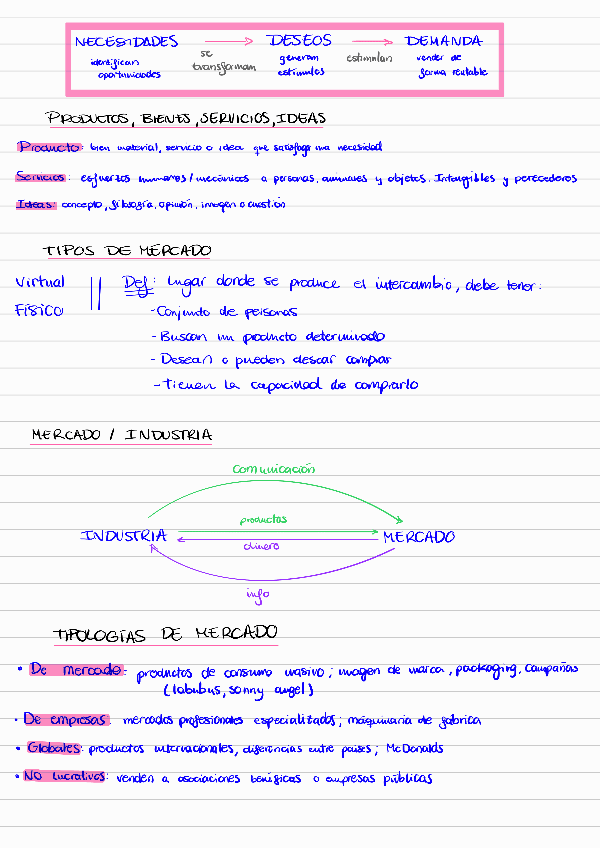 NECESIDADES → DESEOS → DEMANDA
identifican oportunidades se transforman generan estímulos estimulan vender de forma rentable
PRODUCTOS, BIENES, SERVICIOS, IDEAS
Producto: bien material, servicio o idea que satisfaga una necesidad
Servicios: esfuerzos humanos/mecánicos a personas, animales y objetos. Intangibles y perecederos
Ideas: concepto, filosofía, opinión, imagen o cuestión
TIPOS DE MERCADO
Virtual
FÍSICO
Def: lugar donde se produce el intercambio, debe tener:
- Conjunto de personas
- Buscan un producto determinado
- Desean o pueden desear comprar
- Tienen la capacidad de comprarlo
MERCADO / INDUSTRIA
comunicación
productos
INDUSTRIA MERCADO
dinero
info
TIPOLOGÍAS DE MERCADO
• De mercado: productos de consumo masivo; imagen de marca, packaging, campañas
(labubus, sonny angel)
• De empresas: mercados profesionales especializados; maquinaria de fabrica
• Globales: productos internacionales, diferencias entre paises; McDonalds
• NO lucrativos: venden a asociaciones benéficas o empresas públicas